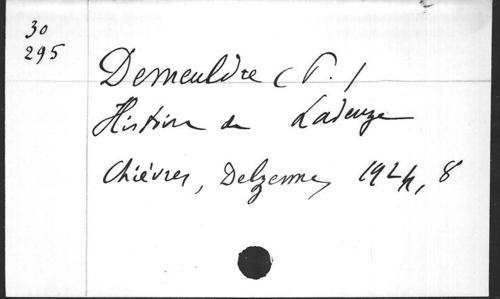 30
295
Demeuldre (P.)
Histoire de Ladeuze
Chièvres, Delzenne, 1924, 8